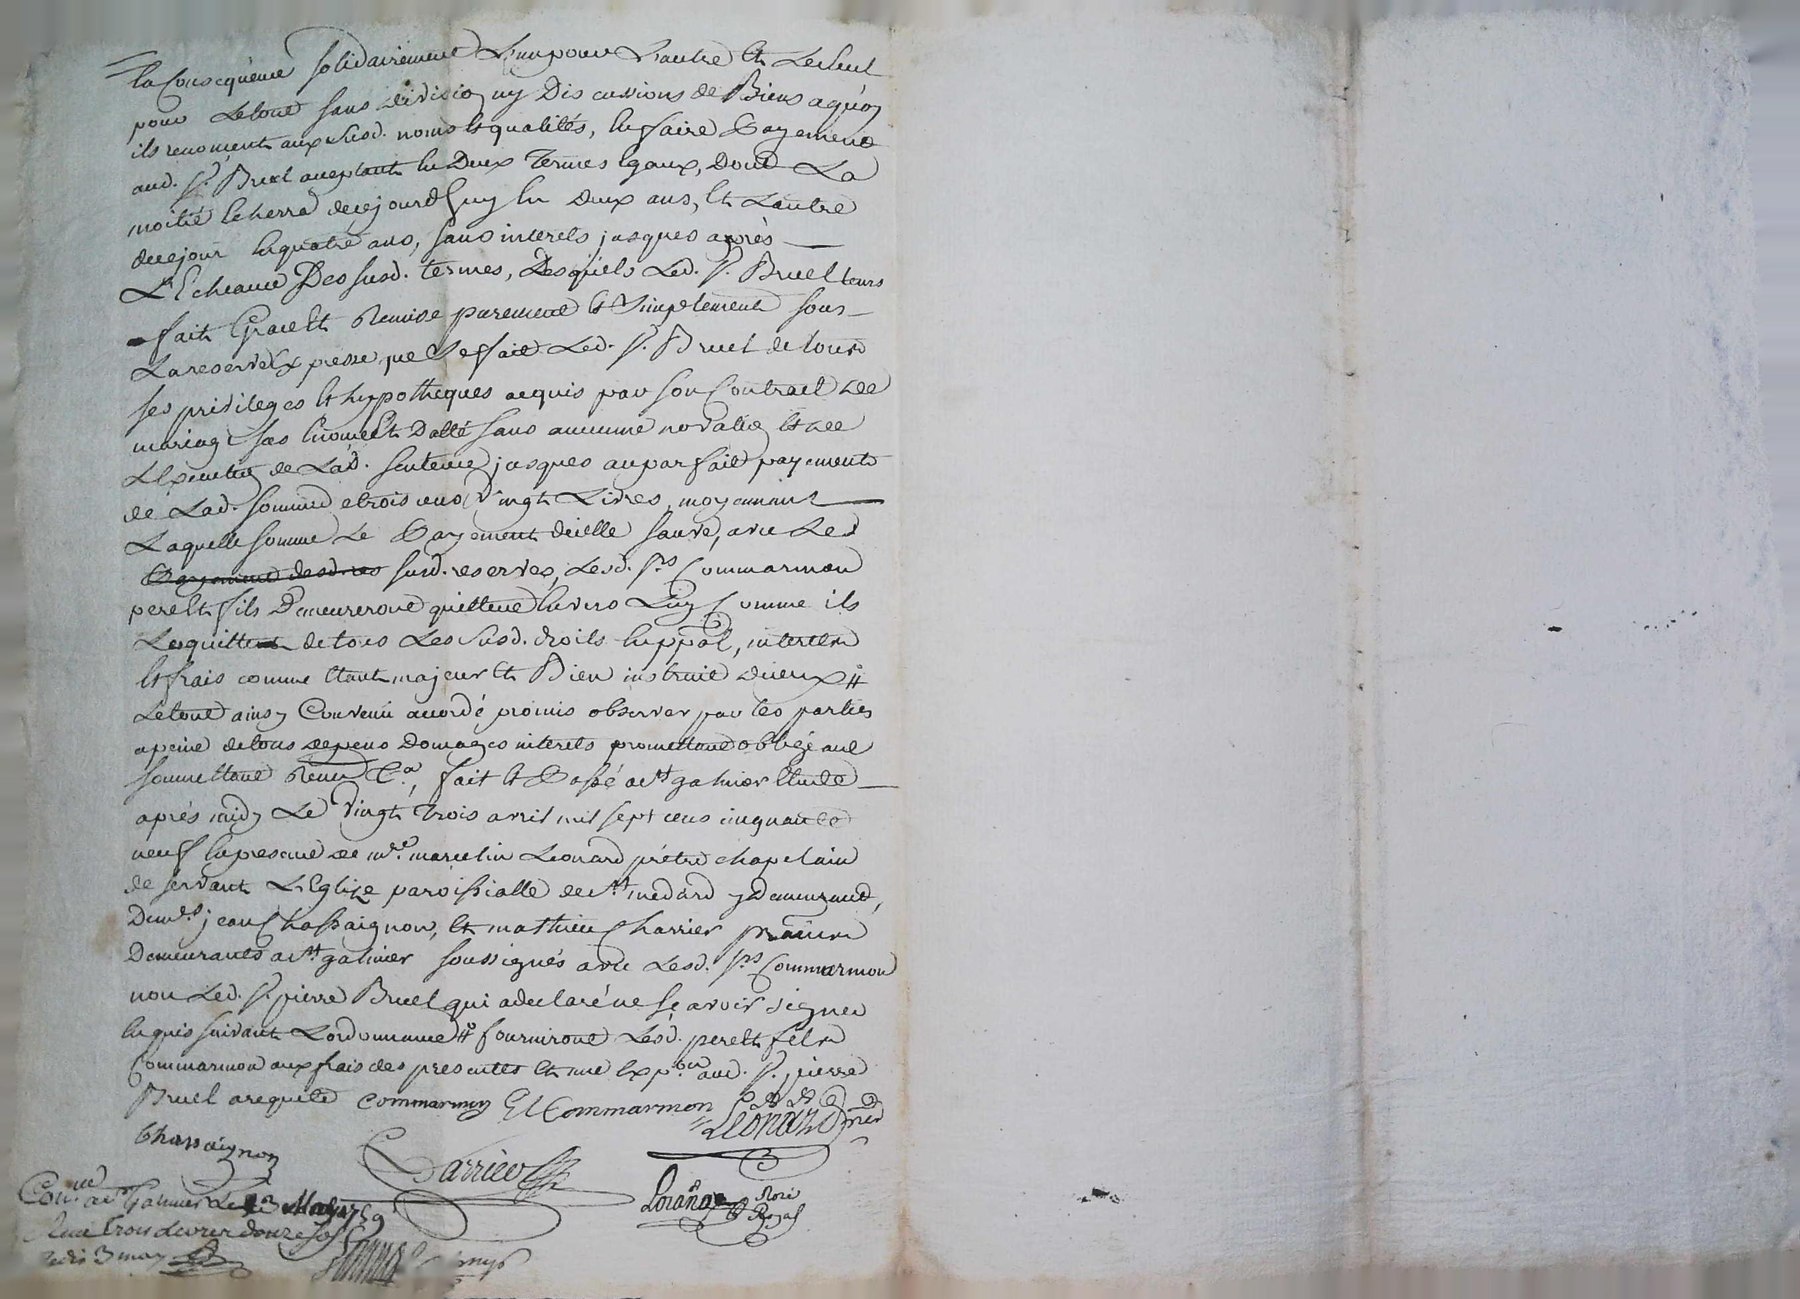 la Consequence solidairement L'un pour L'autre et Le seul
pour Le tout sans division ny Discussions de Biens a quoy
ils renoncent aux susd. noms et qualités, en faire Payement
aud. Sr. Bruel acceptant en Deux Termes Egaux, Dont La
moitié Echerra de cejourd'huy en Deux ans, et L'autre
de cejour en quatre ans, sans interets jusques aprés
L'Echeance Des susd. termes, Desquels Led. Sr. Bruel leurs
fait Grace et Remise purement et Simplement sous
La reserve Expresse que Se fait Led. Sr. Bruel de tous
ses privileges et hypotheques acquis par son Contract de
mariage sus Enoncé et Datté sans aucunne novation et de
L'Execution de Lad. sentence jusques au parfait payement
de Lad. somme de trois cens vingt Livres, moyennant
Laquelle somme Le Payement d'icelle sauve, avec Les
susd. reserves, Lesd. Srs Commarmon
pere et fils Demeureront quittent Envers Luy Comme ils
Le quittent de tous Les susd. droits En ppal, interets
et frais comme Etant majeur et Bien instruit d'ieux #
Le tout ainsy Convenu accordé promis observer par les parties
a peine de tous depens Domages interets promettant obligeant
soumettant Renon Ca, fait et Passé a St galmier Etude
aprés midy Le vingt trois avril mil sept cens cinquante
neuf En presence de mre marcelin Leonard prétre chapelain
de servant L'Eglize paroissialle de St medard y Demeurant,
De mes jean Chassaignon, et mathieu Charrier
Demeurants a St galmier soussignés avec Lesd. Srs Commarmon
non Led. Sr. pierre Bruel qui a declaré ne sçavoir signer
Enquis suivant L'ordonnance # fourniront Lesd. pere et fils
Commarmon aux frais des presentes Et une Exp.on aud. Sr. pierre
Bruel a requete Commarmon Commarmon Leonard
Chassaignon
Con.lé a St Galmier Le 3 May 1759
Reçu trois Livres douze sols
Royal